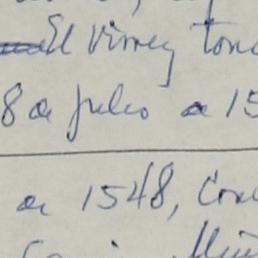 El Virrey tom
8 de julio de 15
de 1548, Con